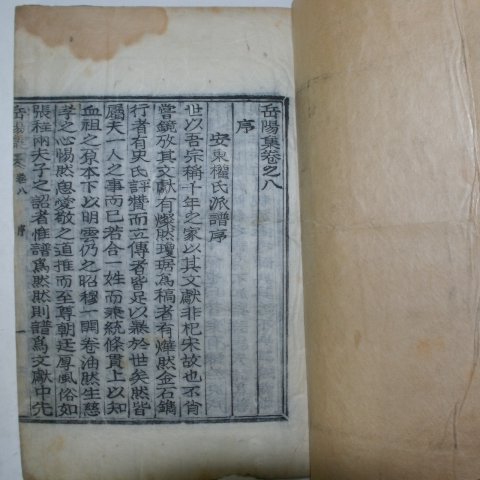 岳陽集卷之八
序
安東權氏派譜序
世以吾宗稱千年之家以其文獻非杞宋故也不肖
嘗竊攷其文獻有燦然瓊琚爲稿者有煒然金石鐫
行者有史氏評贊而立傳者皆足以懸於世矣然皆
屬夫一人之事而已若合一姓而兼統條貫上以知
血祖之爲本下以明雲仍之昭穆一開卷油然生慈
孝之心惕然思愛敬之道推而至尊朝廷厚風俗如
張程兩夫子之詔者惟譜爲然然則譜爲文獻中先
岳陽集 卷八 序 一